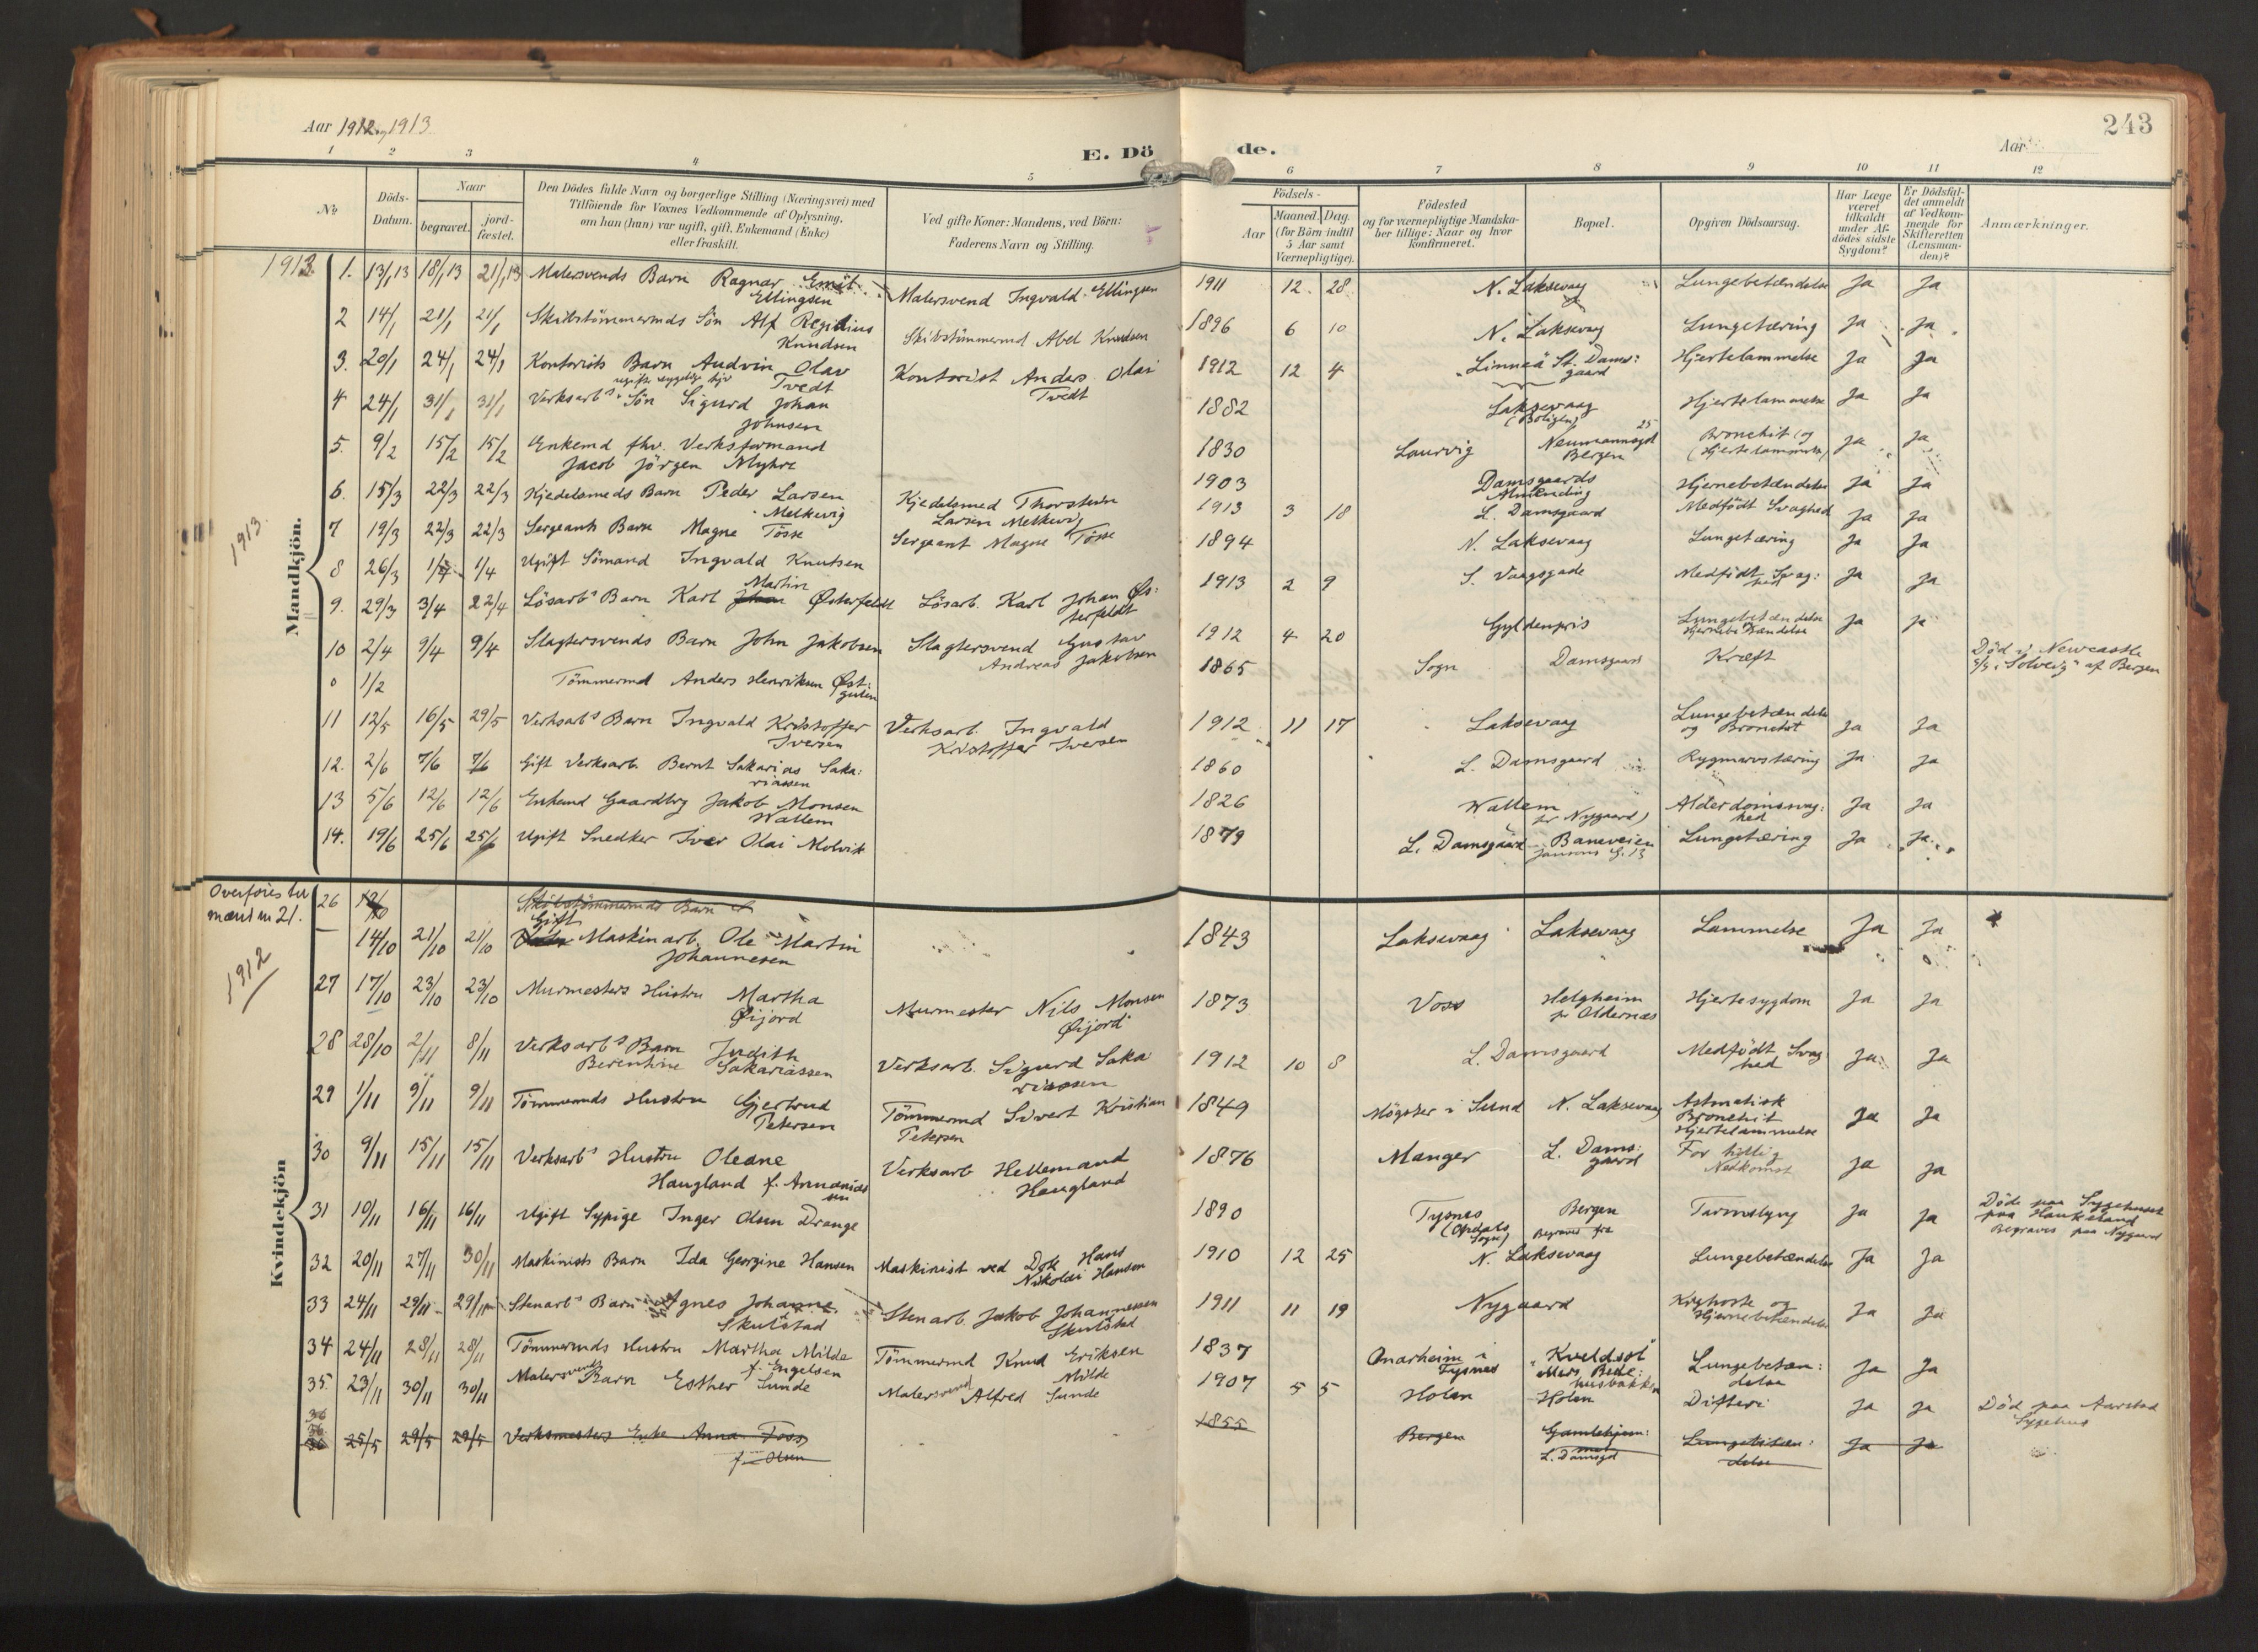 Aar 1912, 1913
243
E. Döde.
Aar
1 2 3 4 5 6 7 8 9 10 11 12
No
Döds-Datum.
Naar
begravet. jordfæstet.
Den Dödes fulde Navn og borgerlige Stilling (Næringsvei) med
Tilföiende for Voxnes Vedkommende af Oplysning,
om han (hun) var ugift, gift, Enkemand (Enke)
eller fraskilt.
Ved gifte Koner: Mandens, ved Börn:
Faderens Navn og Stilling.
Födsels-
Aar
Maaned. Dag.
(for Börn indtil
5 Aar samt
Værnepligtige).
Födested
og for værnepligtige Mandskaber tillige: Naar og hvor
konfirmeret.
Bopæl.
Opgiven Dödsaarsag.
Har Læge
været
tilkaldt
under Afdödes sidste
Sygdom?
Er Dödsfaldet anmeldt
af Vedkommende for
Skifteretten
(Lensmanden)?
Anmærkninger.
1913
Mandkjön.
1913.
1. 13/1 13 18/1 13 21/1 13 Malersvends Barn Ragnar Emil Ellingsen Malersvend Ingvald Ellingsen 1911 12 28 N. Laksevaag Lungebetændelse Ja Ja
2 14/1 21/1 21/1 Skibstömmermds Sön Alf Regidius Knudsen Skibstömmermd Abel Knudsen 1896 6 10 N. Laksevaag Lungetæring Ja Ja
3. 20/1 24/1 24/1 Kontorists Barn Audvin Olav Tvedt Kontorist Anders Olai Tvedt 1912 12 4 "Linneä" St. Damsgaard Hjertelammelse Ja Ja
4 24/1 31/1 31/1 Verksarbs Sön Sigurd Johan Johnsen 1882 Laksevaag (Boligen) Hjertelammelse Ja Ja
5. 9/2 15/2 15/2 Enkemd fhv. Verksformand Jacob Jörgen Myhre 1830 Laurvig Neumannsgd 25 Bergen Bronchit og (Hjertelammelse) Ja Ja
6. 15/3 22/3 22/3 Kjedelsmeds Barn Peder Larsen Melkevig Kjedelsmed Thorstein Larsen Melkevig 1903 Damsgaards Almending Hjernebetændelse Ja Ja
7 19/3 22/3 22/3 Sergeants Barn Magne Tösse Sergeant Magne Tösse 1913 3 18 L. Damsgaard Medfödt Svaghed Ja Ja
8 26/3 1/4 1/4 Ugift Sömand Ingvald Knutsen 1894 N. Laksevaag Lungetæring Ja Ja
9. 29/3 3/4 22/4 Lösarbs Barn Karl Martin Østerfeldt Lösarb. Karl Johan Østerfeldt 1913 2 9 S. Vaagsgade Medfödt Svaghed Ja Ja
10 2/4 9/4 9/4 Slagtersvends Barn John Jakobsen Slagtersvend Gustav Andreas Jakobsen 1912 4 20 Gyldenpris Lungebetændelse Hjernebetændelse Ja Ja
0 1/2 Tömmermd Anders Henriksen 1865 Sogn Damsgaard Kræft Död i Newcastle s/s "Solveig" af Bergen
11 12/5 16/5 29/5 Verksarbs Barn Ingvald Kristoffer Iversen Verksarb. Ingvald Kristoffer Iversen 1912 11 17 Laksevaag Lungebetændelse og Bronchit Ja Ja
12. 2/6 7/6 7/6 Gift Verksarb. Bernt Sakarias Sakariassen 1860 L. Damsgaard Rygmarvstæring Ja Ja
13 5/6 12/6 12/6 Enkemd Gaardbrg Jakob Monsen Wallem 1826 Wallem pr Nygaard) Alderdomssvaghed Ja Ja
14. 19/6 25/6 25/6 Ugift Snedker Iver Olai Molvik 1879 L. Damsgaard Baneveien Lungetæring Ja Ja
Overföres til
mænd nr 21.
1912
Kvindekjön
26 Skibstömmermds Barn
14/10 21/10 21/10 Gift Maskinarb. Ole Martin Johannesen 1843 Laksevaag Laksevaag Lammelse Ja Ja
27 17/10 23/10 23/10 Murmesters Hustru Martha Øijord Murmester Nils Monsen Øijord 1873 Voss Helgheim pr Oldernæs Hjertesygdom Ja Ja
28 28/10 2/11 8/11 Verksarbs Barn Judith Berentine Sakariassen Verksarb. Sigurd Sakariassen 1912 10 8 L. Damsgaard Medfödt Svaghed Ja Ja
29 1/11 9/11 9/11 Tömmermds Hustru Gjertrud Petersen Tömmermd Sivert Kristian Petersen 1849 Mögster i Sund N. Laksevaag Astmatisk Bronchit Hjertelammelse Ja Ja
30 9/11 15/11 15/11 Verksarbs Hustru Oleane Haugland f. Annaniassen Verksarb Hellemand Haugland 1876 Manger L. Damsgaard For tidlig Nedkomst Ja Ja
31 10/11 16/11 16/11 Ugift Sypige Inger Olsen Drange 1890 Tysnes (Opdals Sogn) Bergen Begraves fra Tarmslyng Ja Ja Död paa Sygehuset paa Haukeland Begraves paa Nygaard
32 20/11 27/11 30/11 Maskinists Barn Ida Georgine Hansen Maskinist ved Dok Hans Nikolai Hansen 1910 12 25 N. Laksevaag Lungebetændelse Ja Ja
33 24/11 29/11 29/11 Stenarbs Barn Agnes Johanne Skulstad Stenarb. Jakob Johannessen Skulstad 1911 11 19 Nygaard Kighoste og Hjernebetændelse Ja Ja
34 24/11 28/11 28/11 Tömmermds Hustru Martha Milde f. Engelsen Tömmermd Knud Eriksen Milde 1837 Onarheim i Tysnes "Kveldsol" Bedehusbakken Lungebetændelse Ja Ja
35. 23/11 30/11 30/11 Malersvends Barn Esther Sunde Malersvend Alfred Sunde 1907 5 5 Holen Holen Difteri Ja Ja Död paa Aarstad Sygehus
36 25/5 29/5 29/5 Verksmesters Enke Anna Foss f. Olsen 1855 Bergen Gamlehjemmet L. Damsgd Lungebetændelse Ja Ja